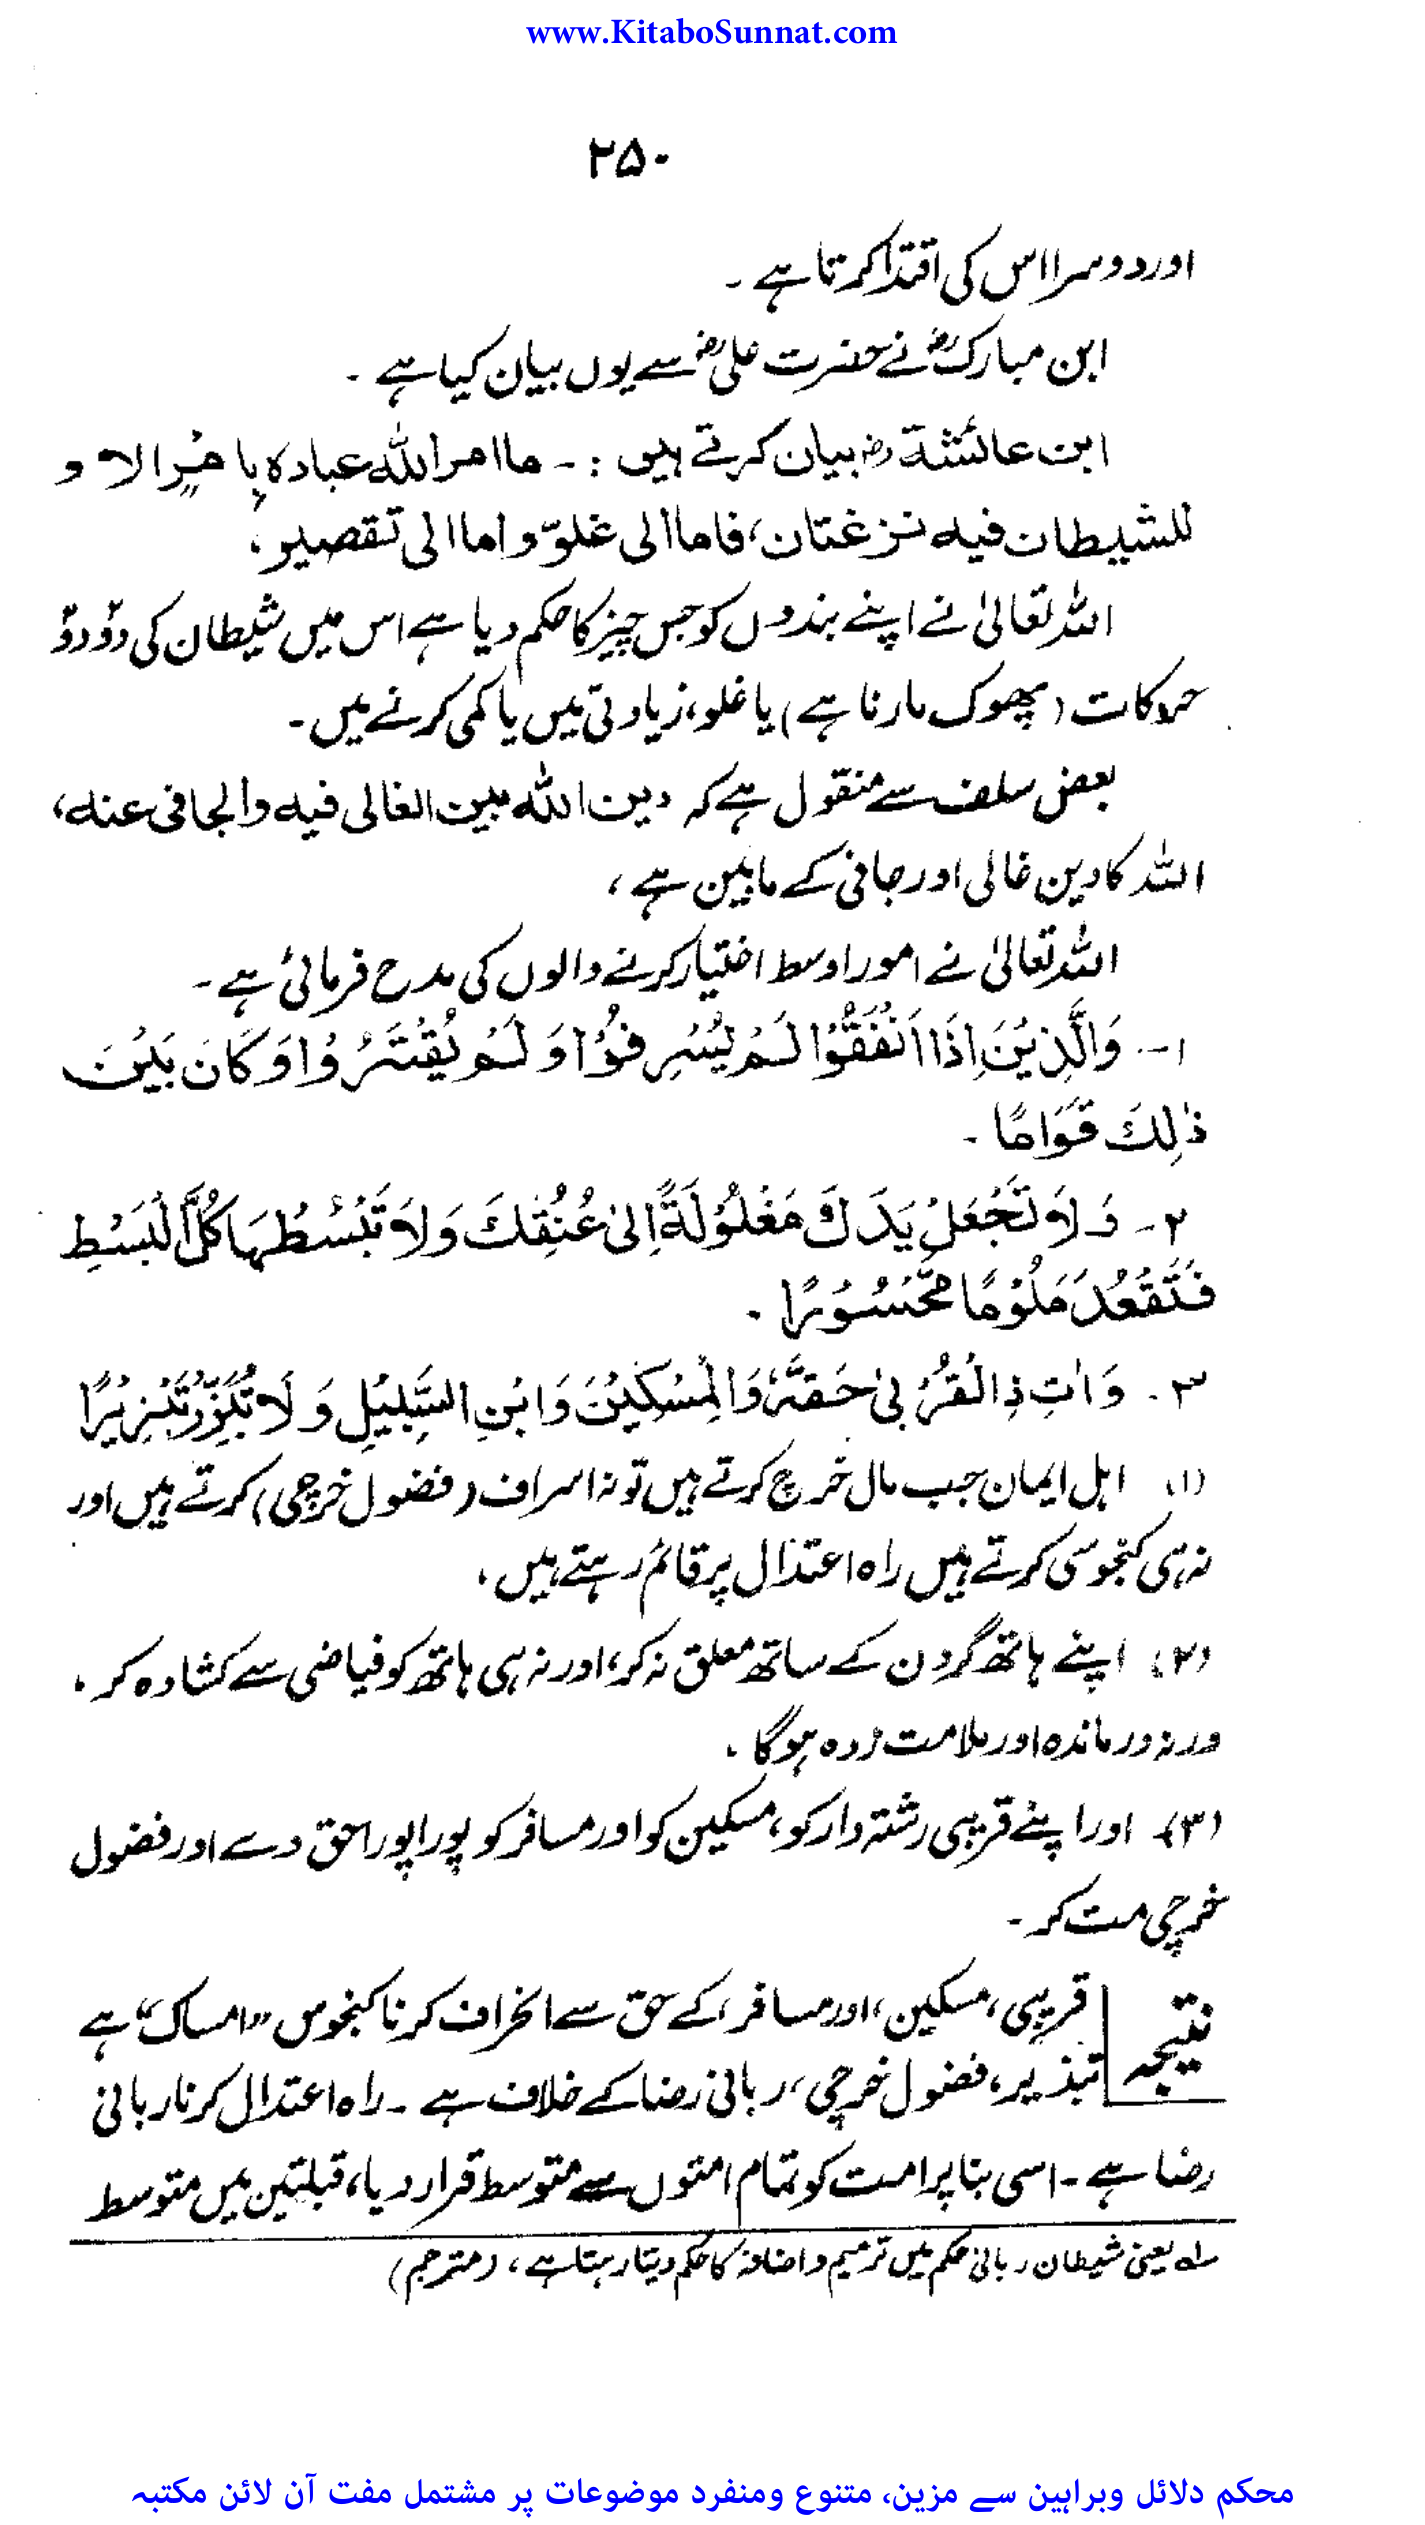 www.KitaboSunnat.com
۲۵۰
اور دوسرا اس کی اقتدا کرتا ہے ۔
ابن مبارکؓ نے حضرت علیؓ سے یوں بیان کیا ہے ۔
ابن عائشۃ رضہ بیان کرتے ہیں : ۔ ما امر اللہ عبادہ با مر الا و
للشیطان فیہ نزغتان، فاما الی غلوّ واما الی تقصیر ،
اللہ تعالیٰ نے اپنے بندوں کو جس چیز کا حکم دیا ہے اس میں شیطان کی دوؔ دوؔ
حرکات (پھوک مارنا ہے) یا غلو، زیادتی میں یا کمی کرنے میں ۔
بعض سلف سے منقول ہے کہ دین اللہ بین الغالی فیہ والجافی عنہ،
اللہ کا دین غالی اور جافی کے مابین ہے ،
اللہ تعالیٰ نے امور اوسط اختیار کرنے والوں کی مدح فرمائی ہے ۔
۱۔ وَالَّذِیْنَ اِذَا اَنْفَقُوْا لَمْ یُسْرِفُوْا وَلَمْ یُقْتَرُوْا وَکَانَ بَیْنَ
ذٰلِكَ قَوَامًا ۔
۲۔ وَلَا تَجْعَلْ یَدَكَ مَغْلُوْلَۃً اِلیٰ عُنُقِكَ وَلَا تَبْسُطْہَا کُلَّ الْبَسْطِ
فَتَقْعُدَ مَلُوْمًا مَّحْسُوْرًا ۔
۳۔ وَاٰتِ ذِالْقُرْبیٰ حَقَّہٗ وَالْمِسْکِیْنَ وَابْنِ السَّبِیْلِ وَلَا تُبَزِّرْ تَبْزِیْرًا
(۱) اہل ایمان جب مال خرچ کرتے ہیں تو نہ اسراف (فضول خرچی) کرتے ہیں اور
نہ ہی کنجوسی کرتے ہیں راہ اعتدال پر قائم رہتے ہیں ،
(۲) اپنے ہاتھ گردن کے ساتھ معلق نہ کر، اور نہ ہی ہاتھ کو فیاضی سے کشادہ کر ،
ورنہ درماندہ اور ملامت زدہ ہوگا ۔
(۳) اور اپنے قریبی رشتہ دار کو، مسکین کو اور مسافر کو پورا پورا حق دے اور فضول
خرچی مت کر ۔
نتیجہ قریبی، مسکین، اور مسافر، کے حق سے انحراف کرنا کنجوس "امساک" ہے
تبذیر، فضول خرچی، ربانی رضا کے خلاف ہے ۔ راہ اعتدال کرنا ربانی
رضا ہے ۔ اسی بنا پر امت کو تمام امتوں سے متوسط قرار دیا، قبلتین میں متوسط
لہ یعنی شیطان ربانی حکم میں ترمیم و اضافہ کا حکم دیتا رہتا ہے ، (مترجم)
محکم دلائل وبراہین سے مزین، متنوع ومنفرد موضوعات پر مشتمل مفت آن لائن مکتبہ